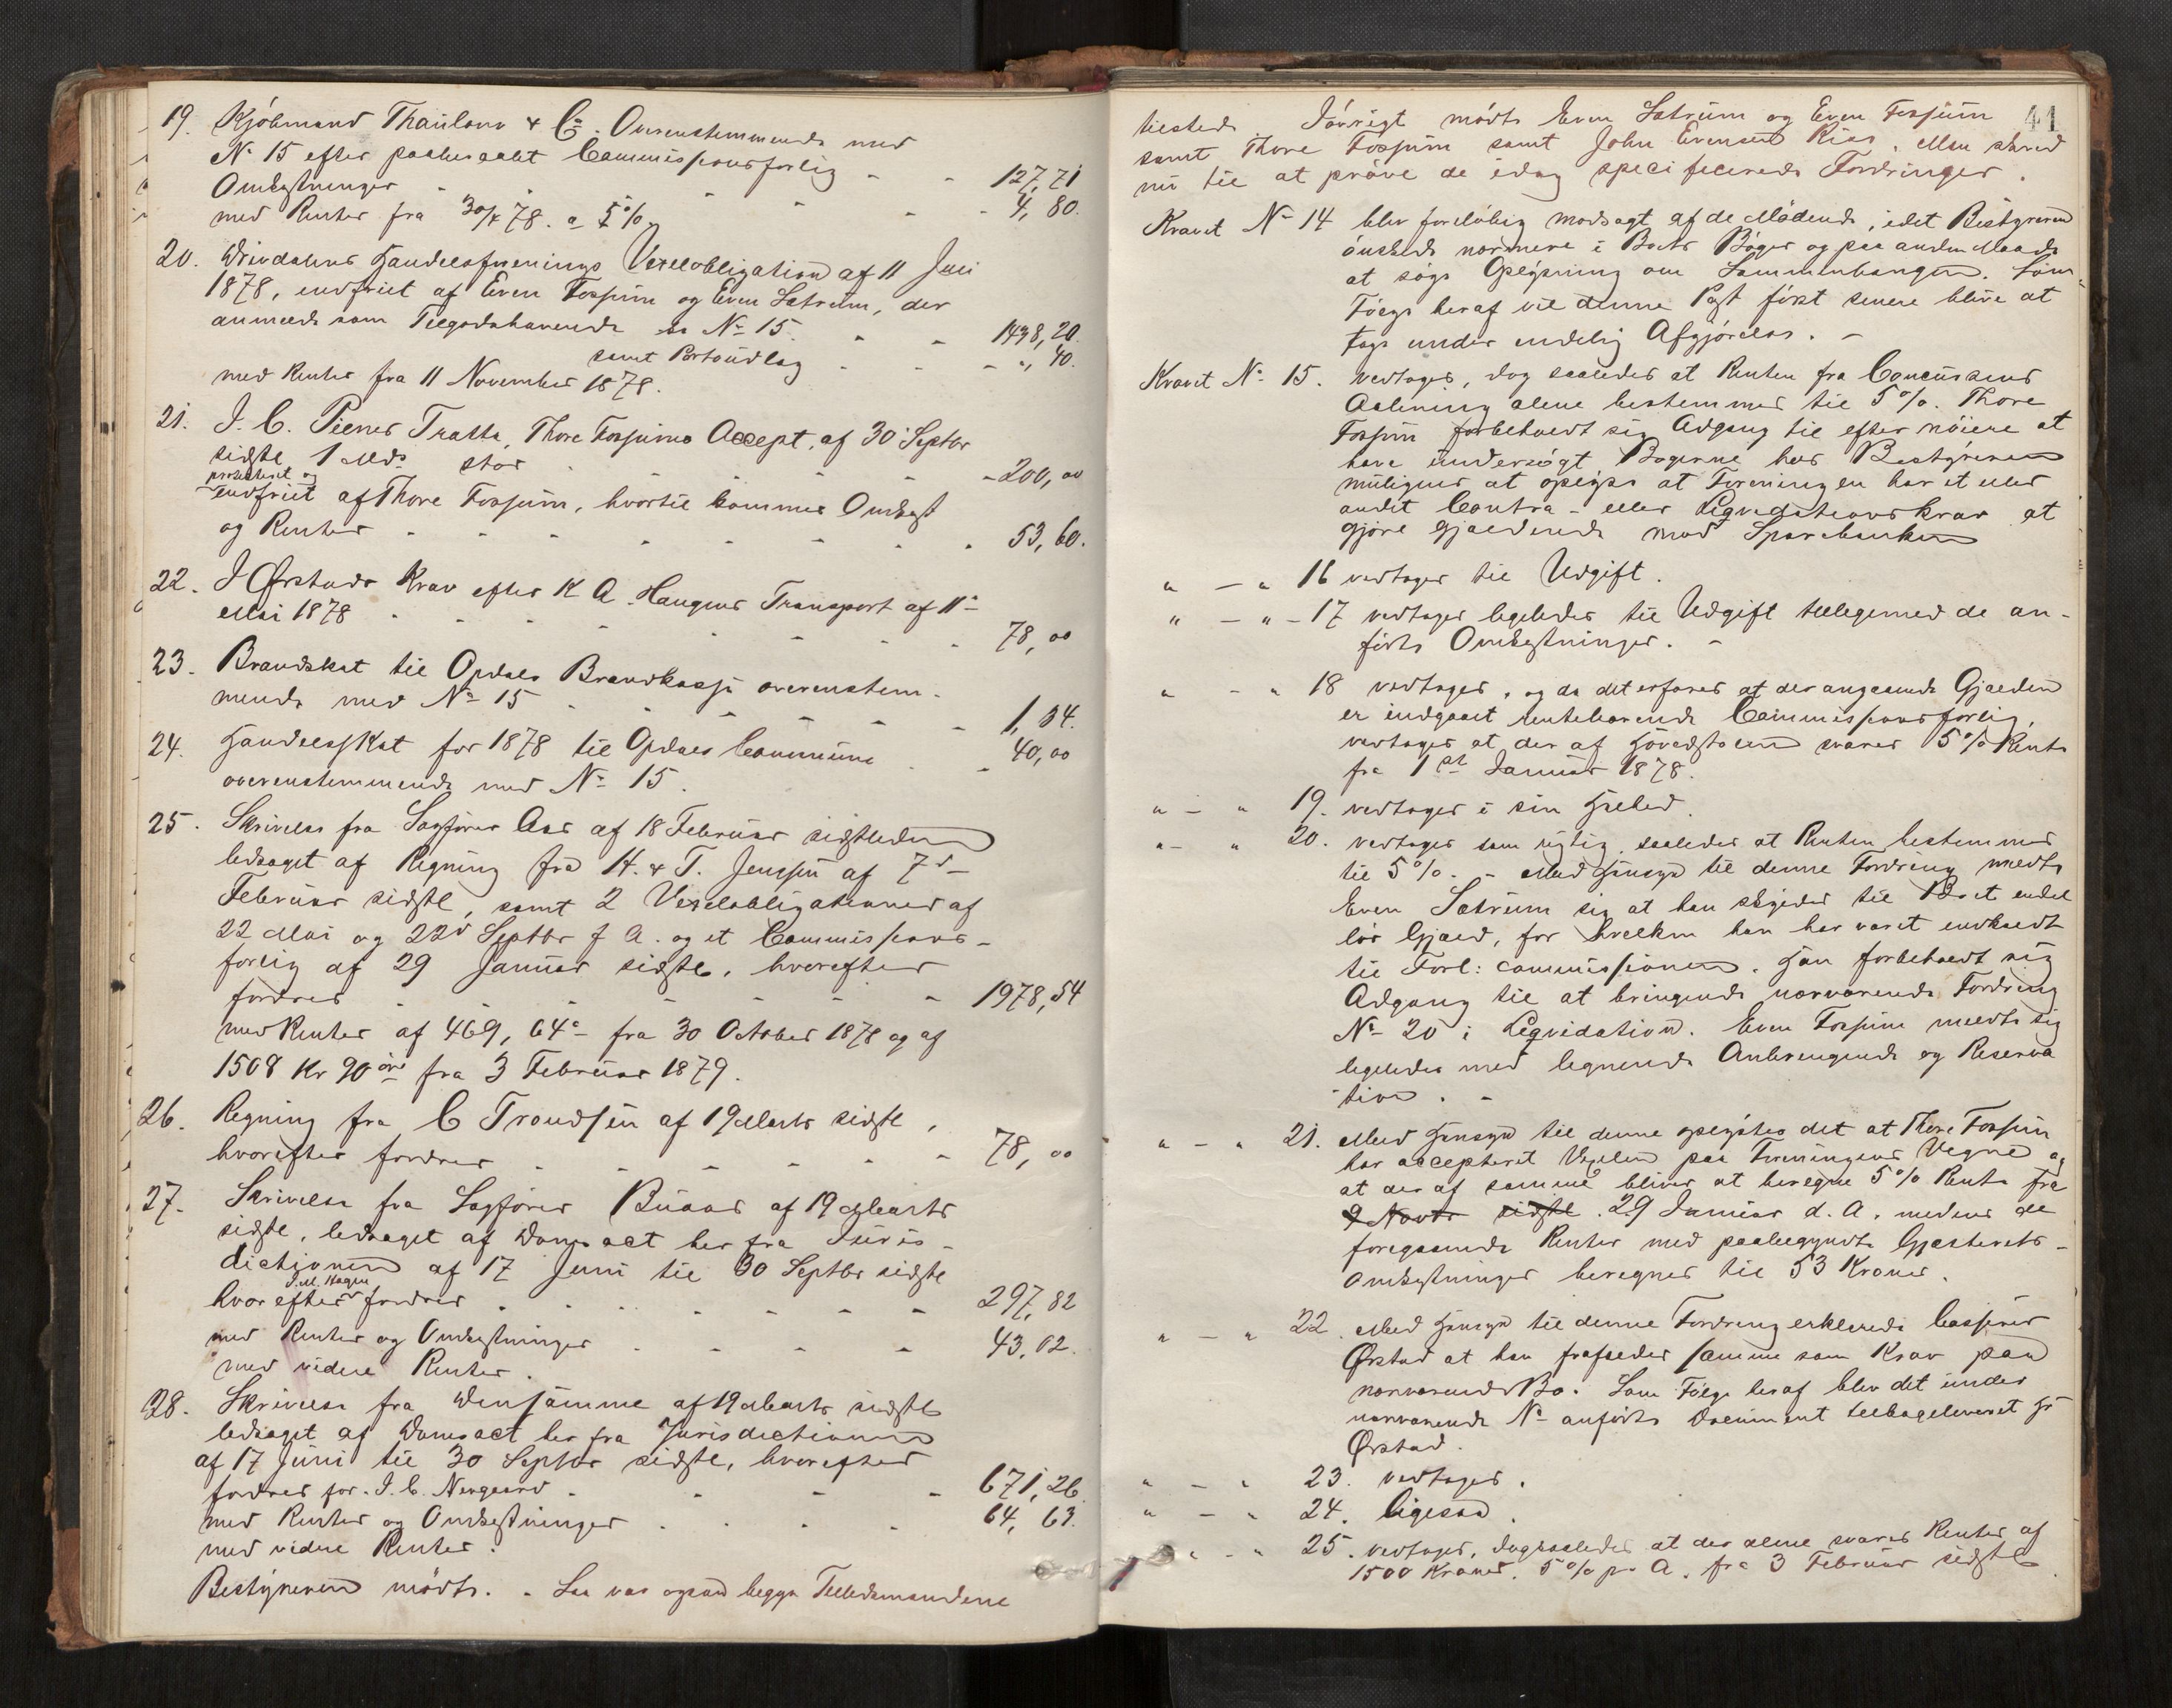 19. Kjöbmand Thaulow & Co. Overenstemmende med
No 15 efter paaberaabt Commissionsforlig - - 127,71
Omkostninger - - - - - 4,80.
med Renter fra 30/4 78. a 5%
20. Drivdalens Handelsforenings Vexelobligation af 11 Juli
1878, indfriet af Even Fossum og Even Sætrum, der
anmelde som Tilgodehavende ss No 15. - - 1438,20.
samt Portoudlæg - - - ", 40.
med Renter fra 11 November 1878.
21. J. C. Pienes Tratte, Thore Fossums Accept, af 30 Septbr
sidstl 1 Mds stor - - - - - 200,00
protesteret og
indfriet af Thore Fossum, hvortil kommer Omkost
og Renter - - - - - - - 53,60.
22. J Ørstads Krav efter K A. Haugens Transport af 11te
Mai 1878 - - - - - - - 78,00
23. Brandskat til Opdals Brandkasse overenstem-
mende med No 15 - - - - - 1,34.
24. Handelsskat for 1878 til Opdals Commune - - 40,00
overenstemmende med No 15.
25. Skrivelse fra Sagfører Aas af 18 Februar sidstleden
ledsaget af Regning fra H. & T. Jenssen af 7de
Februar sidstl, samt 2 Vexelobligationer af
22 Mai og 22de Septbr f A. og et Commissions-
forlig af 29 Januar sidstl, hvorefter
fordres - - - - - - - 1978,54
med Renter af 469,64ø fra 30 October 1878 og af
1508 Kr 90 öre fra 3 Februar 1879.
26. Regning fra C Trondsen af 19 Marts sidstl,
hvorefter fordres - - - - - - 78,00
27. Skrivelse fra Sagfører Buaas af 19 Marts
sidstl, ledsaget af Domsact her fra Juris-
dictionen af 17 Juni til 30 Septbr sidstl
J. M. Hagen
hvorefter fordrer - - - - - - 297,82
med Renter og Omkostninger - - - - 43,02.
med videre Renter.
28. Skrivelse fra Densamme af 19 Marts sidstl
ledsaget af Domsact her fra Jurisdictionen
af 17 Juni til 30 Septbr sidstl, hvorefter
fordres for J. C. Nergaard - - - - 671,26
med Renter og Omkostninger - - - - 64,63.
med videre Renter.
Bestyreren mödte. - Saa var ogsaa begge Tillidsmændene
41
tilstede Iövrigt mödte Even Sætrum og Even Fossum
samt Thore Fossum samt John Evensen Rise. Man skred
nu til at pröve de idag specificerede Fordringer.
Kravet No 14 blev foreløbig modsagt af de Mødende, idet Bestyreren
önskede nærmere i Boets Böger og paa anden Maade
at søge Oplysning om Sammenhængen. Som
Fölge heraf vil denne Post først senere blive at
tage under endelig Afgjörelse. -
Kravet No 15. vedtages, dog saaledes at Renten fra Concursens
Aabning alene bestemmes til 5%. Thore
Fossum forbeholdt sig Adgang til efter nöiere at
have undersögt Bøgerne hos Bestyreren
muligens at oplyse at Foreningen har et eller
andet Contra- eller Liqvidationskrav at
gjöre gjældende mod Sparebanken
" - " 16 vedtages til Udgift.
" - " - 17 vedtages ligeledes til Udgift tilligemed de an-
förte Omkostninger. -
" - " 18 vedtages, og da det erfares at der angaaende Gjælden
er indgaaet rentebærende Commissionsforlig,
vedtages at der af Hovedstolen svares 5% Rente
fra 1ste Januar 1878.
" - " 19. vedtages i sin Helhed.
" - " 20. vedtages som rigtig, saaledes at Renten bestemmes
til 5%. - Med Hensyn til denne Fordring meldte
Even Sætrum sig at han skylder til Boet endel
lös Gjæld, for hvilken han har været indkaldt
til Forl: commissionen. Han forbeholdt sig
Adgang til at bringende nærværende Fordring
No 20 i Liqvidation. Even Fossum meldte sig
ligeledes med lignende Anbringende og Reserva
tion. -
" - " 21. Med Hensyn til denne oplystes det at Thore Fossum
har accepteret Vexelen paa Foreningens Vegne og
at der af samme bliver at beregne 5% Rente fra
9 Novbr sidstl. 29 Januar d. A. medens de
foregaaende Renter med paabegyndte Gjæsterets-
omkostninger beregnes til 53 Kroner.
" - " 22. Med Hensyn til denne Fordring erklærede Casserer
Ørstad at han frafalder samme som Krav paa
nærværende Bo. Som Fölge heraf blev det under
nærværende No anförte Document tilbageleveret Hr
Ørstad.
" - " 23. vedtages.
" - " 24. ligesaa.
" - " 25. vedtages, dog saaledes at der alene svares Renter af
1500 Kroner. 5% p. A. fra 3 Februar sidstl